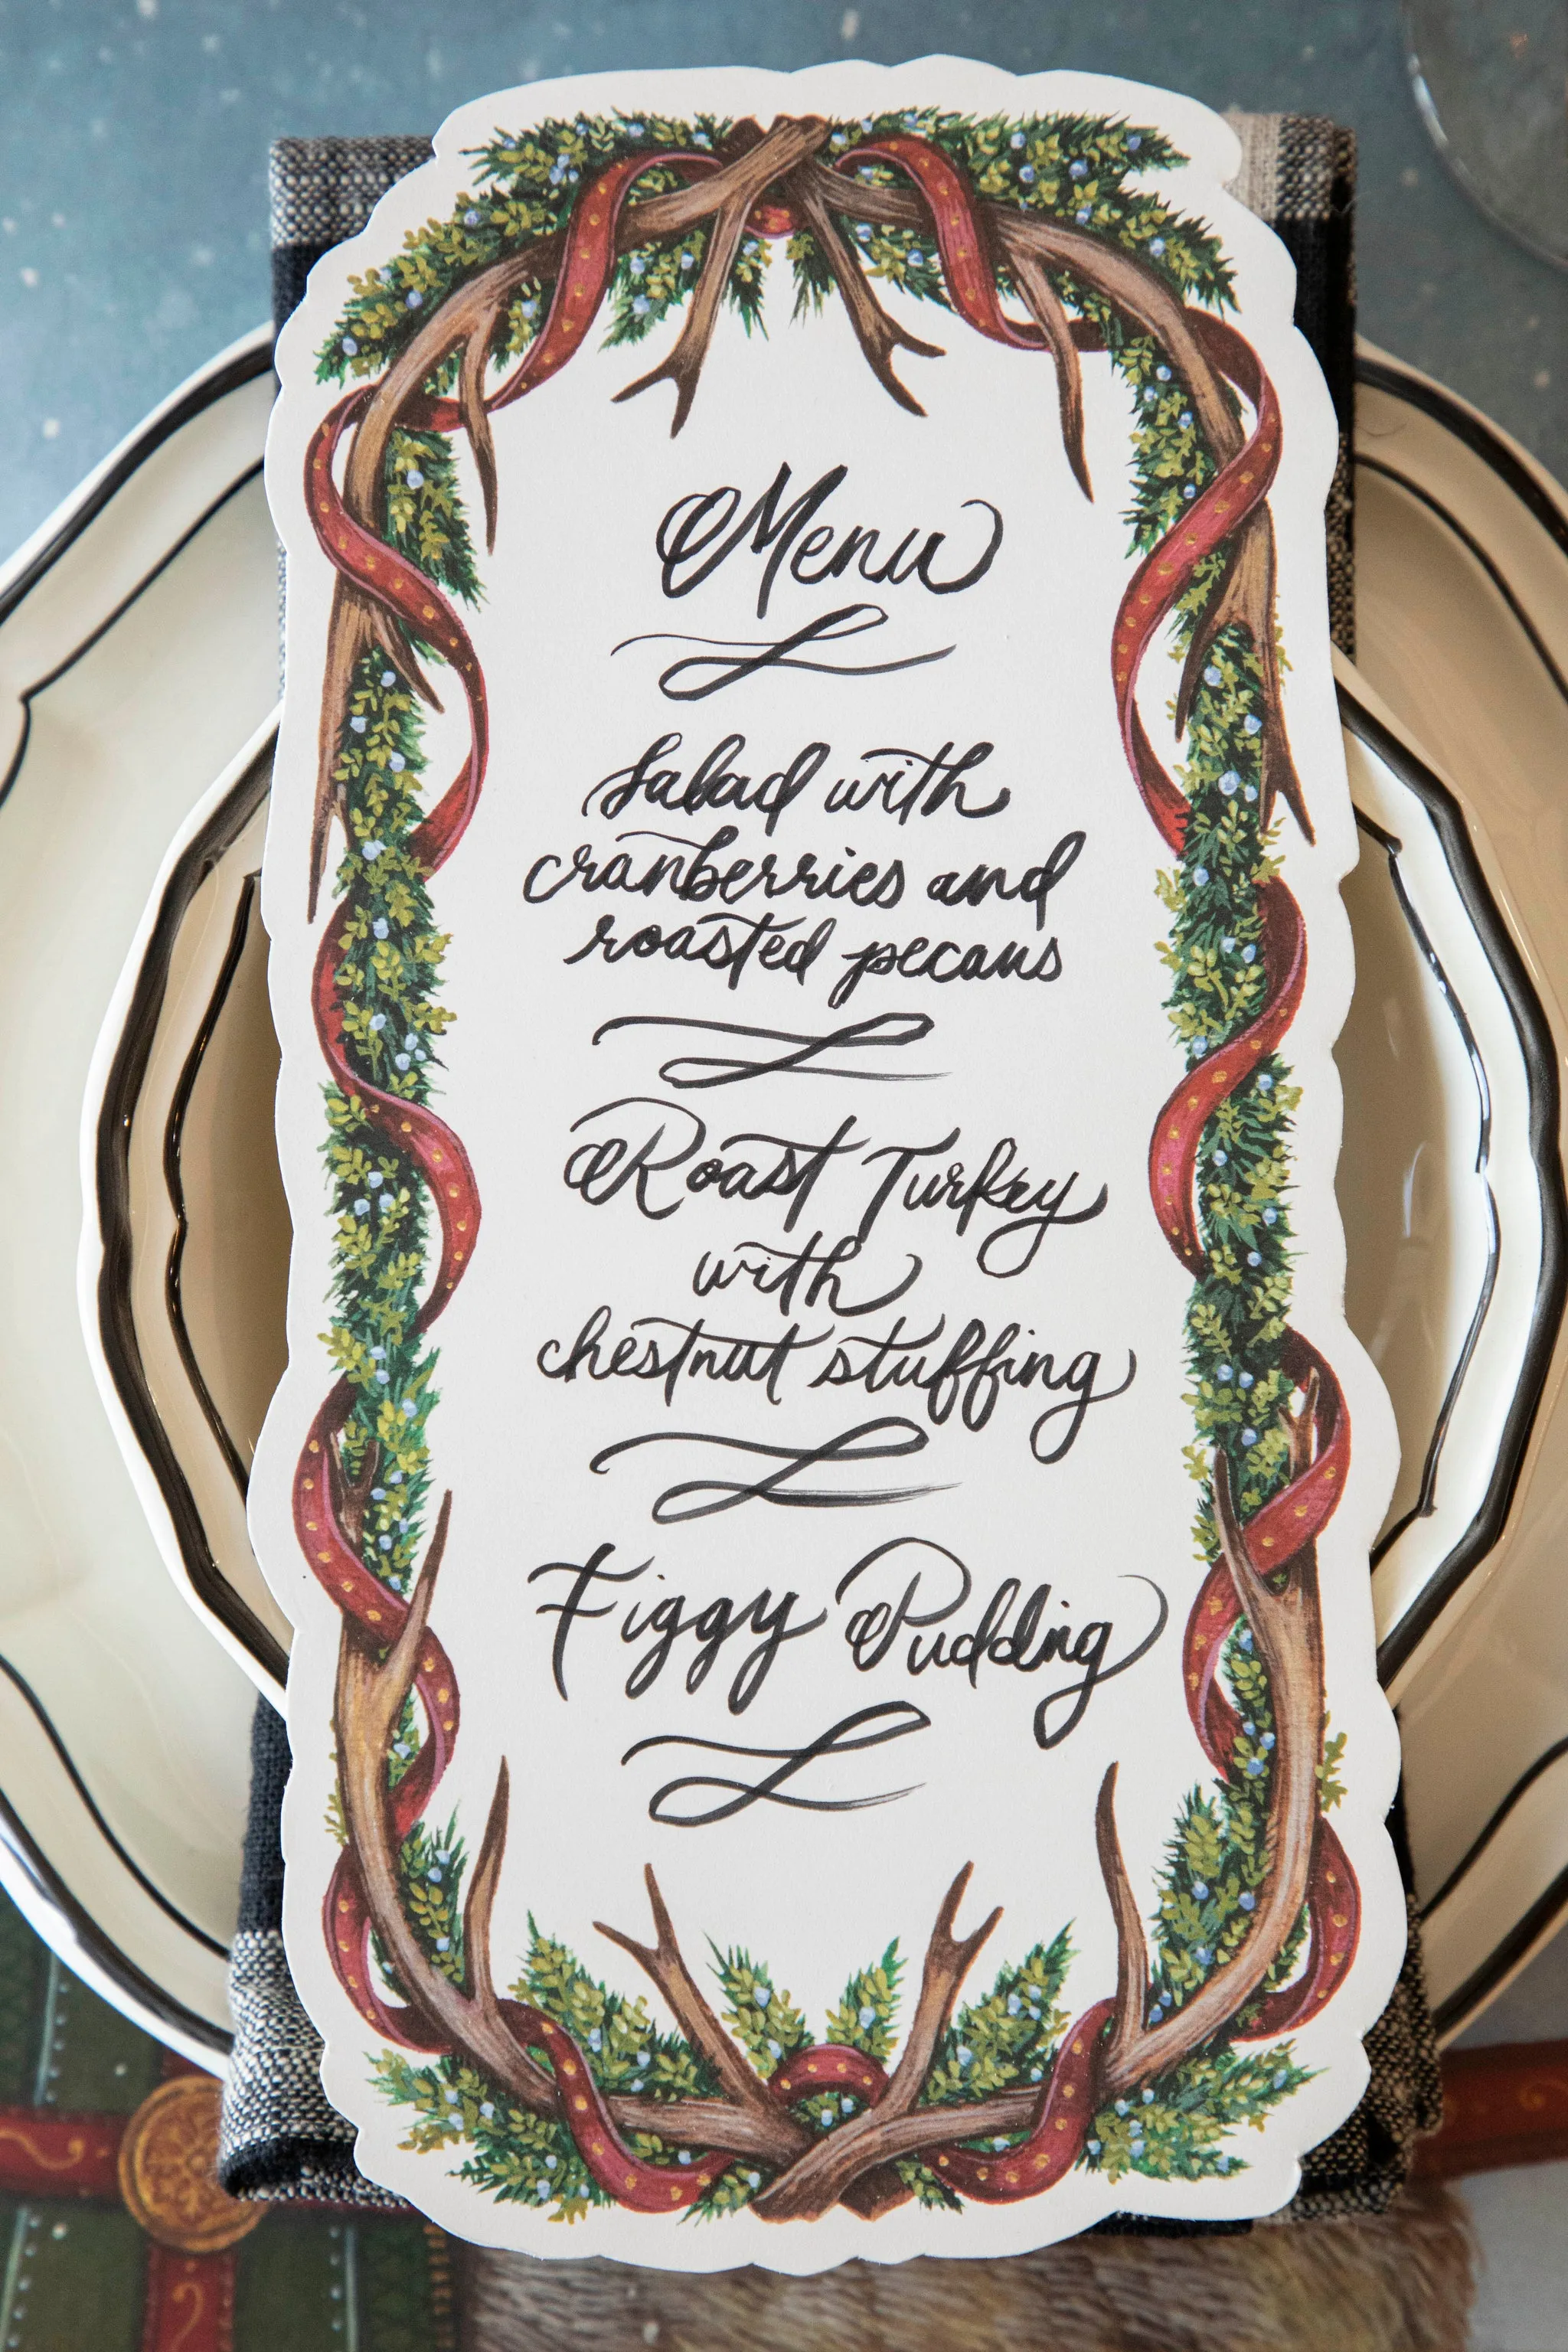 Menu
Salad with
cranberries and
roasted pecans
Roast Turkey
with
chestnut stuffing
Figgy Pudding